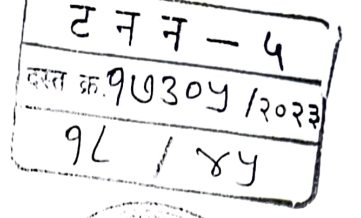 ट न न - ५
दस्त क्र. १७३०५ /२०२३
१८ / ४५